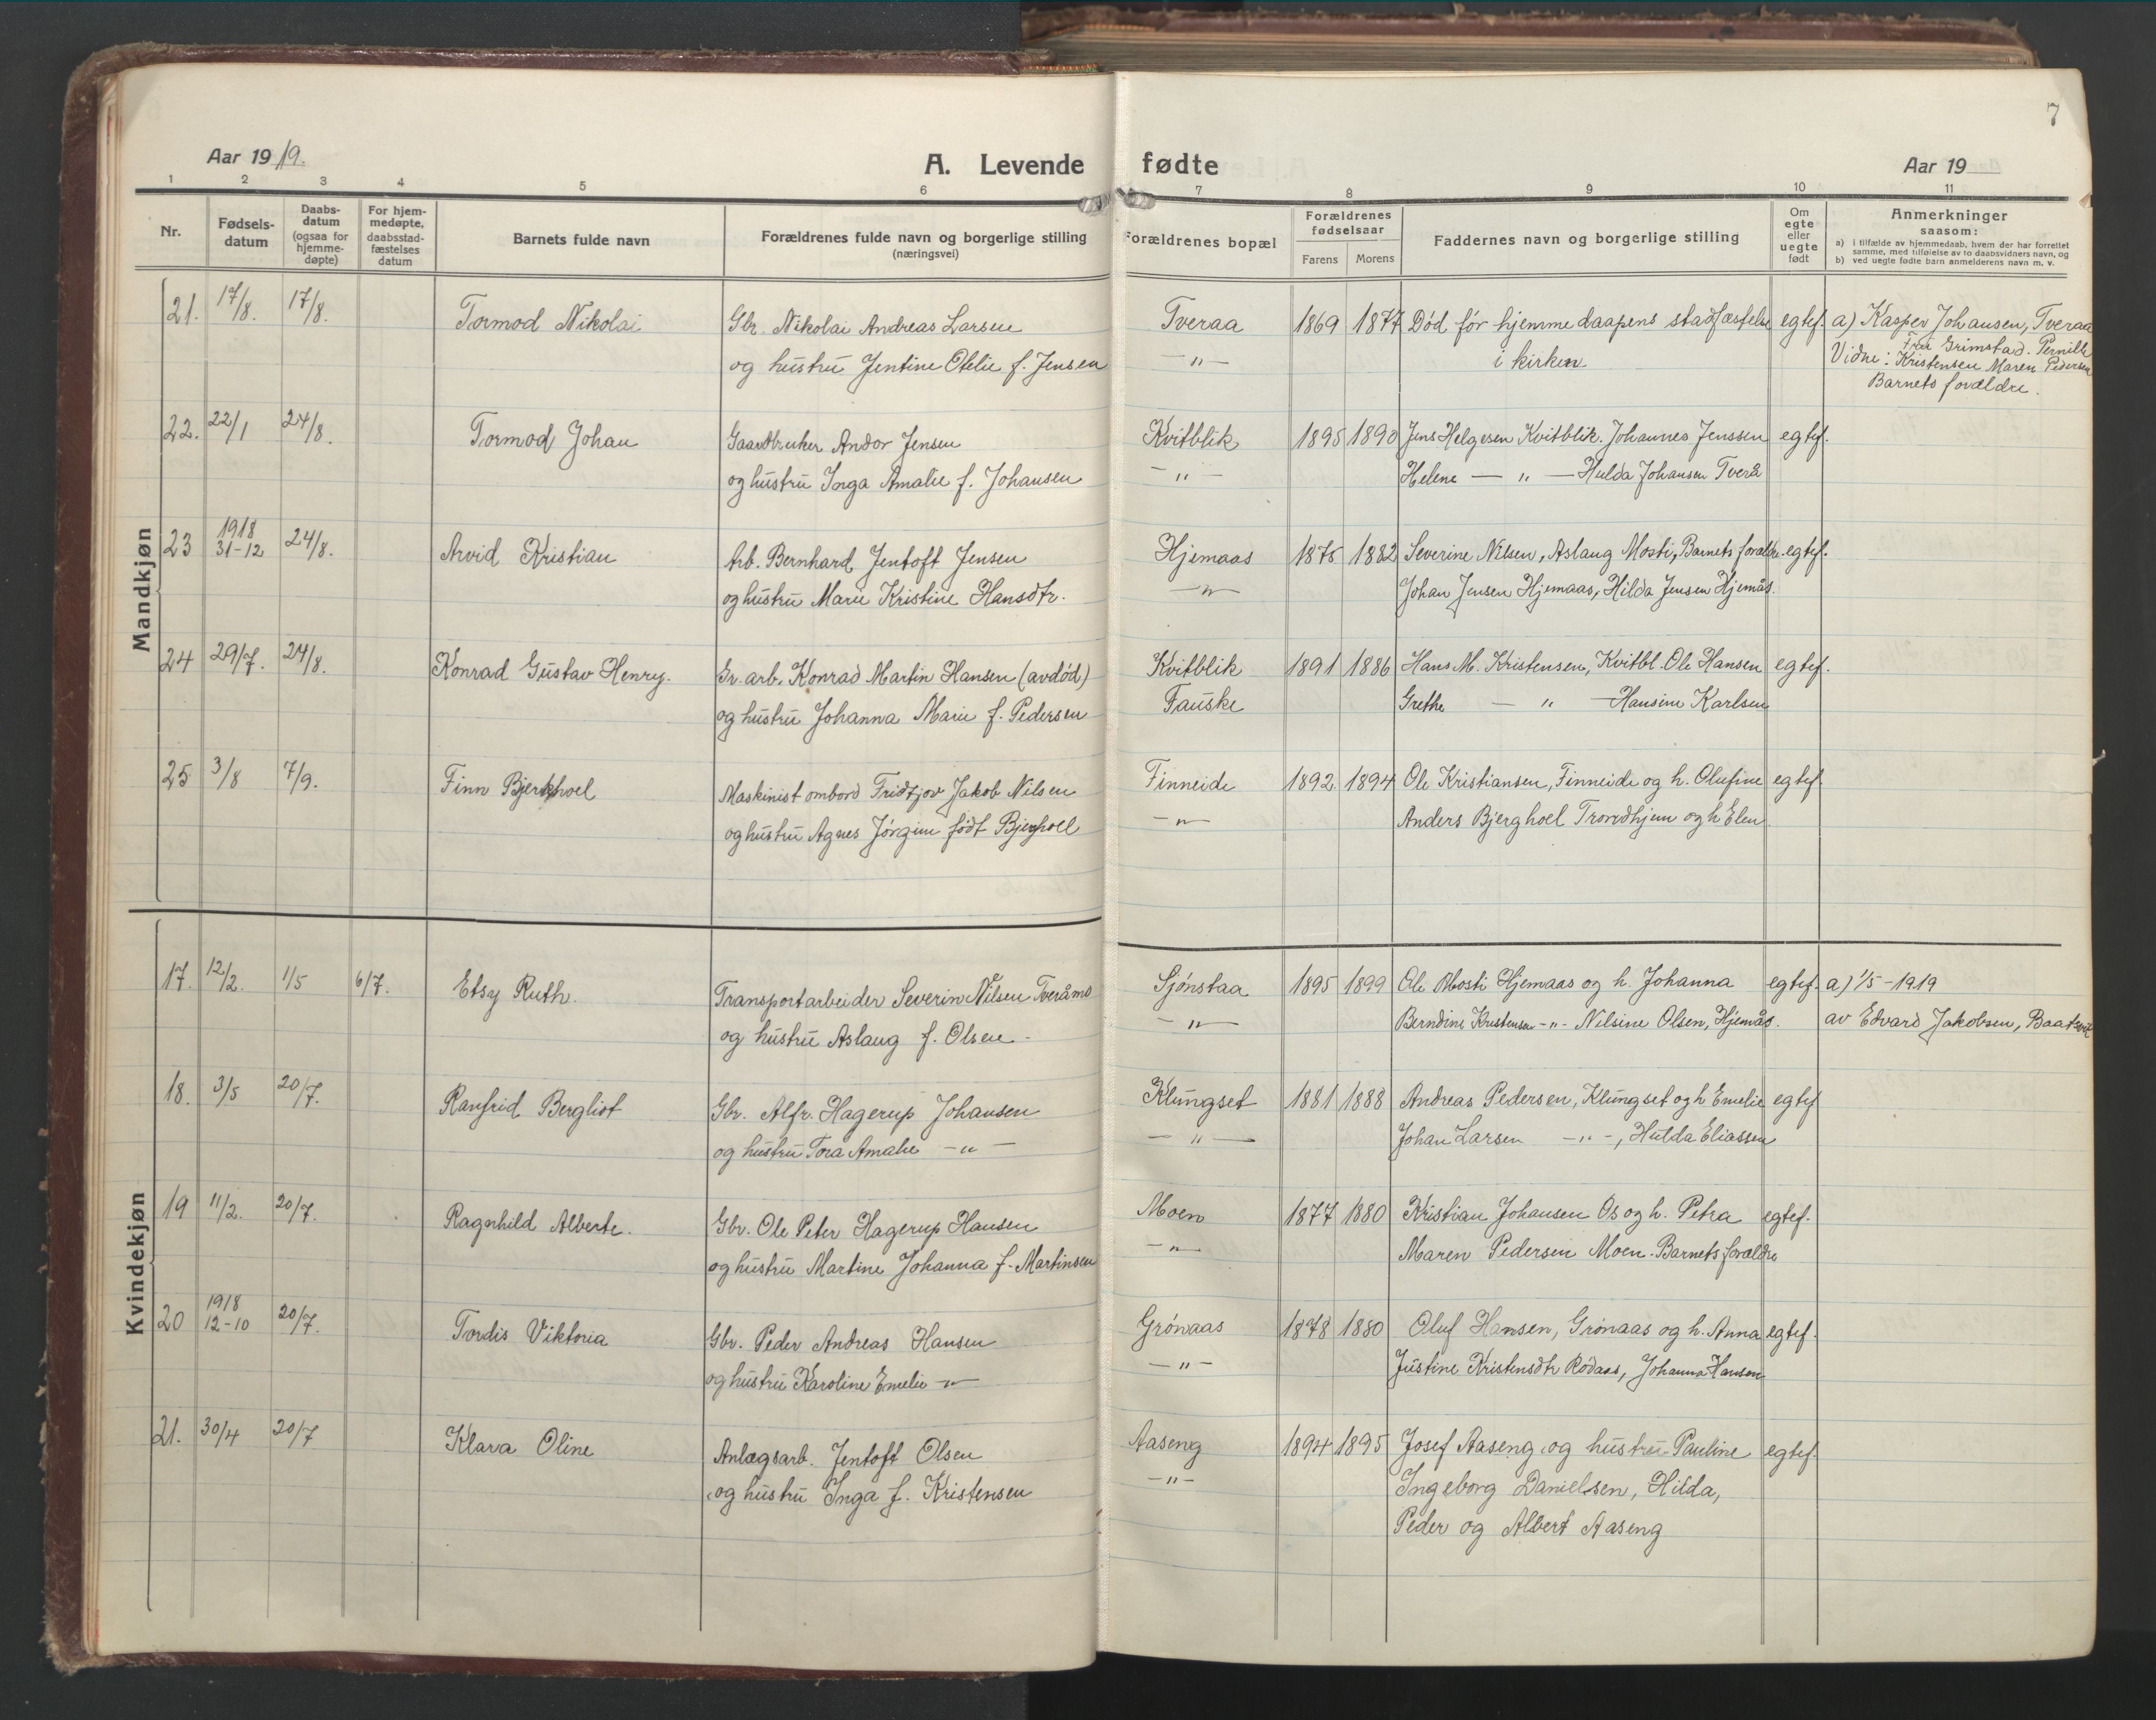 Aar 1919.
A. Levende fødte
Aar 19
7
1 2 3 4 5 6 7 8 9 10 11
Nr.
Fødsels-
datum
Daabs-
datum
(ogsaa for
hjemme-
døpte)
For hjem-
medøpte,
daabsstad-
fæstelses
datum
Barnets fulde navn
Forældrenes fulde navn og borgerlige stilling
(næringsvei)
Forældrenes bopæl
Forældrenes
fødselsaar
Farens Morens
Faddernes navn og borgerlige stilling
Om
egte
eller
uegte
født
Anmerkninger
saasom:
a) i tilfælde av hjemmedaab, hvem der har forrettet
samme, med tilføielse av to daabsvidners navn, og
b) ved uegte fødte barn anmelderens navn m. v.
Mandkjøn
21. 17/8. 17/8. Tormod Nikolai Gbr. Nikolai Andreas Larsen Tveraa 1869 1877 Død før hjemmedaapens stadfæstelse egtef. a) Kasper Johansen, Tveraa
og hustru Jentine Otelie f. Jensen -"- i kirken Vidne: Fru Grimstad. Pernille
Kristensen Maren Pedersen
Barnets forældre.
22. 22/1 24/8. Tormod Johan Gaardbruker Andor Jensen Kvitblik 1895 1890 Jens Helgesen Kvitblik. Johannes Jenssen egtef.
og hustru Inga Amalie f. Johansen -"- Helene — " — Hulda Johansen Tverå
23 1918
31-12 24/8. Arvid Kristian Arb. Bernhard Jentoft Jensen Hjemaas 1875 1882 Severine Nilsen, Aslaug Mosti, Barnets forældre. egtef.
og hustru Marie Kristine Hansdtr. -"- Johan Jensen Hjemaas, Hilda Jensen Hjemås.
24 29/7. 24/8. Konrad Gustav Henry. Gr. arb. Konrad Martin Hansen (avdød) Kvitblik 1891 1886 Hans M. Kristensen, Kvitbl. Ole Hansen egtef.
og hustru Johanna Marie f. Pedersen Fauske Grethe — " — Hansine Karlsen
25 3/8 7/9. Finn Bjerkhoel Maskinist ombord Fridtjov Jakob Nilsen Finneide 1892 1894 Ole Kristiansen, Finneide og h. Olufine egtef.
og hustru Agnes Jørgine født Bjerghoel -"- Anders Bjerghoel Trondhjem og h Elen
Kvindekjøn
17. 12/2. 1/5 6/7. Etsy Ruth. Transportarbeider Severin Nilsen Tveråmo Sjønstaa 1895 1899 Ole Mosti Hjemaas og h. Johanna egtef. a) 1/5-1919
og hustru Aslaug f. Olsen -"- Berndine Kristensen -"- Nilsine Olsen, Hjemås. av Edvard Jakobsen, Baatsvik
18. 3/5 20/7. Ranfrid Bergliot Gbr. Alfr. Hagerup Johansen Klungset 1881 1888 Andreas Pedersen, Klungset og h Emelie egtef
og hustru Tora Amalie -"- -"- Johan Larsen -"-, Hulda Eliassen
19 11/2. 20/7. Ragnhild Alberte. Gbr. Ole Peter Hagerup Hansen Moen 1877 1880 Kristian Johansen Os og h. Petra egtef.
og hustru Martine Johanna f. Martinsen -"- Maren Pedersen Moen. Barnets forældre
20 1918
12-10 20/7. Tordis Viktoria Gbr. Peder Andreas Hansen Grønaas 1878 1880 Oluf Hansen, Grønaas og h. Anna egtef.
og hustru Karoline Emelie -"- -"- Justine Kristensdtr Rødaas, Johanna Hansen
21. 30/4 20/7 Klara Oline Anlægsarb. Jentoft Olsen Aaseng 1894 1895 Josef Aaseng og hustru Pauline egtef.
og hustru Inga f. Kristensen -"- Ingeborg Danielsen, Hilda,
Peder og Albert Aaseng